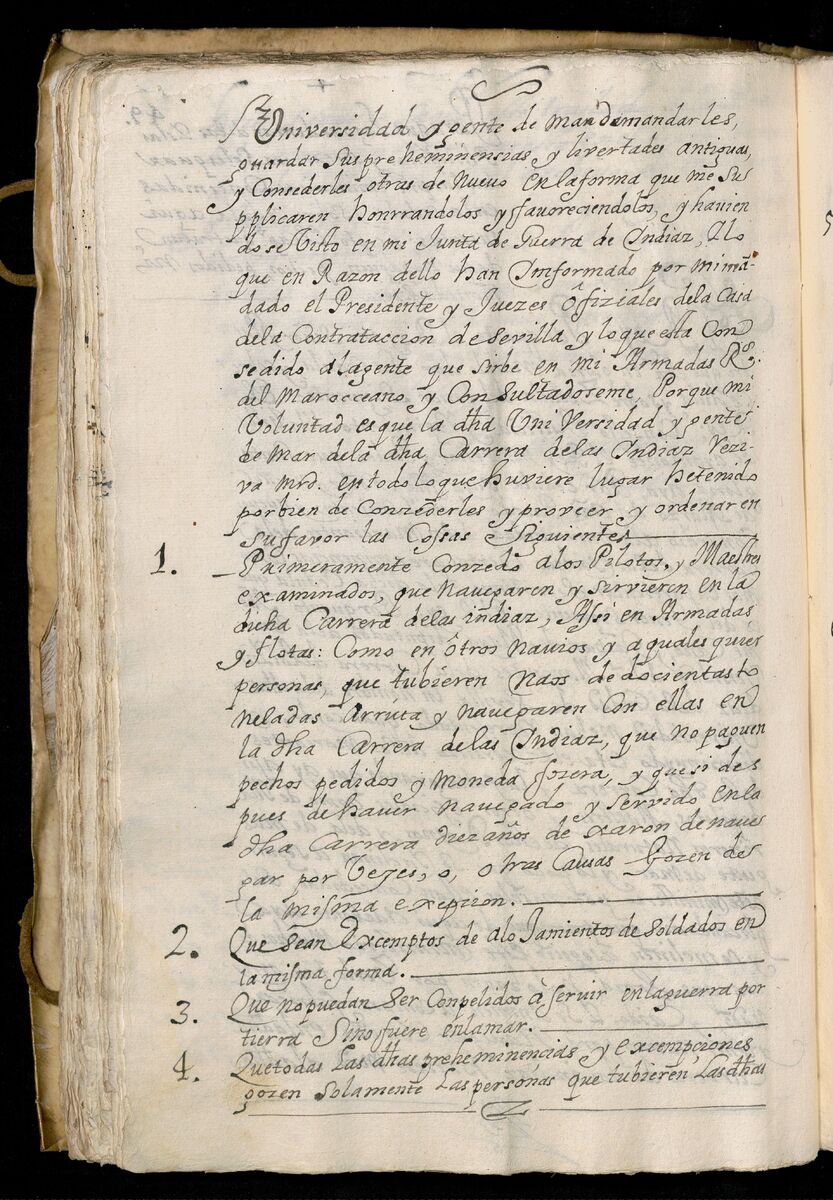 Universidad y gente de mar demandarles,
guardar sus preheminencias y livertades antiguas,
y Consederles otras de nuevo en la forma que me Su
pplicaren honrrandolos y favoreciendolos, y havien
dose Visto en mi Junta de Guerra de Indiaz, Y lo
que en Razon dello han Imformado por mi mã-
dado el Presidente y Juezes Ôfiziales dela Casa
dela Contrataccion de Sevilla y lo que esta Con
sedido ala gente que sirbe en mi Armadas Rs.
del Marocceano y Consultadoseme, Porque mi
Voluntad es que la dha Universidad y gentes
de Mar dela dha Carrera delas Indiaz Rezi-
va mrd. en todo lo que huviere lugar he tenido
por bien de Conzederles y proveer y ordenar en
su favor las Cossas Siguientes
1. Primeramente Conzedo alos Pilotos, y Maestres
examinados, que Navegaren y sirvieren en la
dicha Carrera delas indiaz, Assi en Armadas
y flotas: Como en ôtros navios y a quales quier
personas, que tubieren Naos de docientas to
neladas Arriva y navegaren Con ellas en
la dha Carrera delas Indiaz, que no paguen
pechos pedidos y Moneda forera, y que si des
pues de haver navegado y servido en la
dha Carrera diez años dexaron de nave
gar por Vejes, o, otras Causas Gozen de
la misma exepcion.
2. Que sean Excemptos de aloJamientos de Soldados en
la misma forma.
3. Que no puedan Ser Conpelidos à servir en la guerra por
tierra Sino fuere en la mar.
4. Que todas Las dhas preheminencias y excempciones
gozen solamente Las personas que tubieren Las dhas